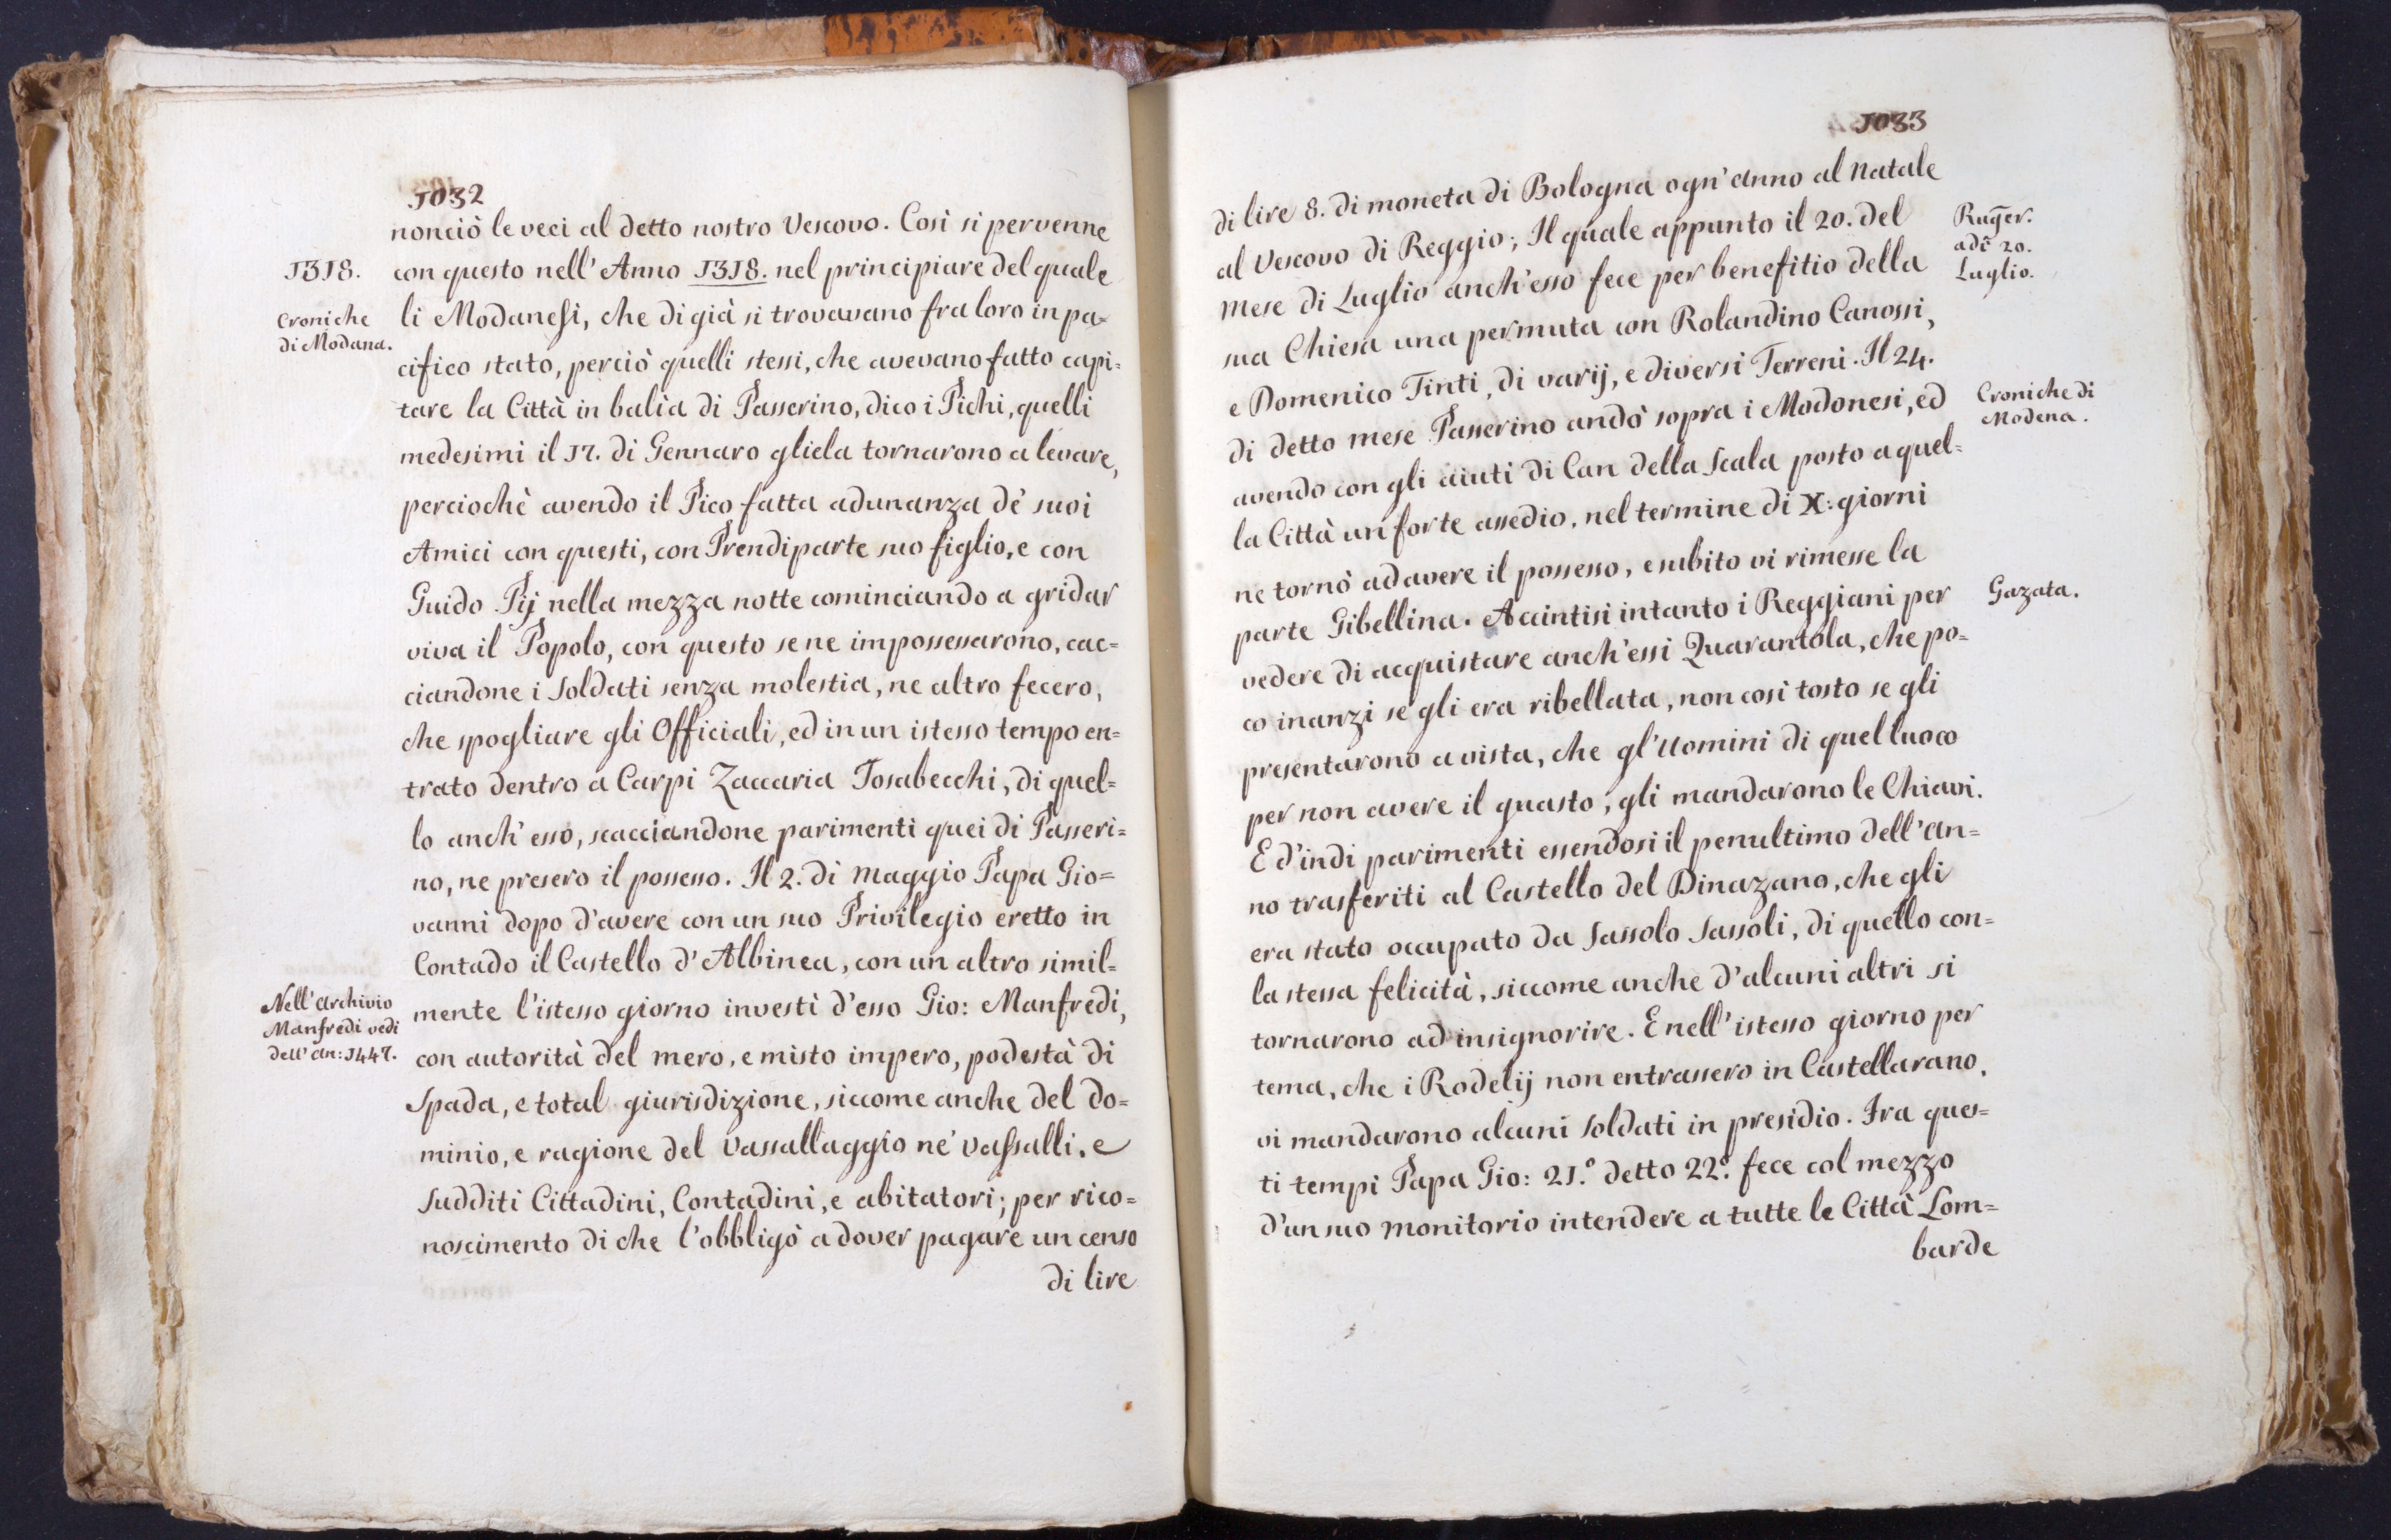 1032
nonciò le veci al detto nostro Vescovo. Così si pervenne
1318.
con questo nell' Anno 1318. nel principiare del quale
Croniche
di Modana.
li Modanesi, che di già si trovavano fra loro in pa=
cifico stato, perciò quelli stessi, che avevano fatto capi=
tare la Città in balìa di Passerino, dico i Pichi, quelli
medesimi il 17. di Gennaro gliela tornarono a levare,
perciochè avendo il Pico fatta adunanza dè suoi
Amici con questi, con Prendiparte suo figlio, e con
Guido Pij nella mezza notte cominciando a gridar
viva il Popolo, con questo se ne impossessarono, cac=
ciandone i Soldati senza molestia, ne altro fecero,
che spogliare gli Officiali, ed in un istesso tempo en=
trato dentro a Carpi Zaccaria Tosabecchi, di quel=
lo anch' esso, scacciandone parimenti quei di Passeri=
no, ne presero il possesso. Il 2. di Maggio Papa Gio=
vanni dopo d'avere con un suo Privilegio eretto in
Contado il Castello d'Albinea, con un altro simil=
Nell' Archivio
Manfredi vedi
dell' an: 1447.
mente l'istesso giorno investì d'esso Gio: Manfredi,
con autorità del mero, e misto impero, podestà di
Spada, e total giurisdizione, siccome anche del do=
minio, e ragione del Vassallaggio ne' Vassalli, e
Sudditi Cittadini, Contadini, e abitatori; per rico=
noscimento di che l'obbligò a dover pagare un censo
di lire
1033
di lire 8. di moneta di Bologna ogn'anno al Natale
al Vescovo di Reggio; Il quale appunto il 20. del
Rug̃er.
adì 20.
Luglio.
Mese di Luglio anch'esso fece per benefitio della
sua Chiesa una permuta con Rolandino Canossi,
e Domenico Tinti, di varij, e diversi Terreni. Il 24.
di detto mese Passerino andò sopra i Modonesi, ed
Croniche di
Modena.
avendo con gli aiuti di Can della Scala posto a quel=
la Città un forte assedio, nel termine di X: giorni
ne tornò ad avere il possesso, e subito vi rimesse la
parte Gibellina. Accintisi intanto i Reggiani per
Gazata.
vedere di acquistare anch'essi Quarantola, che po=
co inanzi se gli era ribellata, non così tosto se gli
presentarono a vista, che gl'Uomini di quel luoco
per non avere il guasto, gli mandarono le Chiavi.
E d'indi parimenti essendosi il penultimo dell'an=
no trasferiti al Castello del Dinazano, che gli
era stato occupato da Sassolo Sassoli, di quello con=
la stessa felicità, siccome anche d'alcuni altri si
tornarono ad insignorire. E nell'istesso giorno per
tema, che i Rodelij non entrassero in Castellarano,
vi mandarono alcuni Soldati in presidio. Fra ques=
ti tempi Papa Gio: 21.º detto 22.º fece col mezzo
d'un suo Monitorio intendere a tutte le Città Lom=
barde